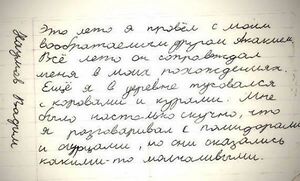 Наумов Вадим
Это лето я провёл с моим
вообратаемым другом Акакием.
Всё лето он сопровождал
меня в моих похождениях.
Ещё я в деревне тусовался
с коровами и курами. Мне
было настолько скучно, что
я разговаривал с помидорами
и огурцами, но они оказались
какими-то молчаливыми.